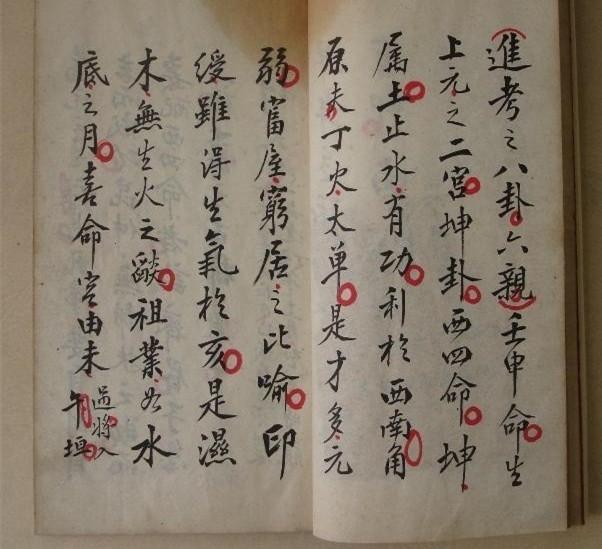 進考之八卦六親壬申命生
上元之二宮坤卦西四命坤
属土止水有功利於西南角
原未丁火太单是才多元
弱富屋窮居之比喻印
绶雖得生氣於亥是濕
木無生火之燄祖業如水
底之月喜命宮由未
將入
午垣